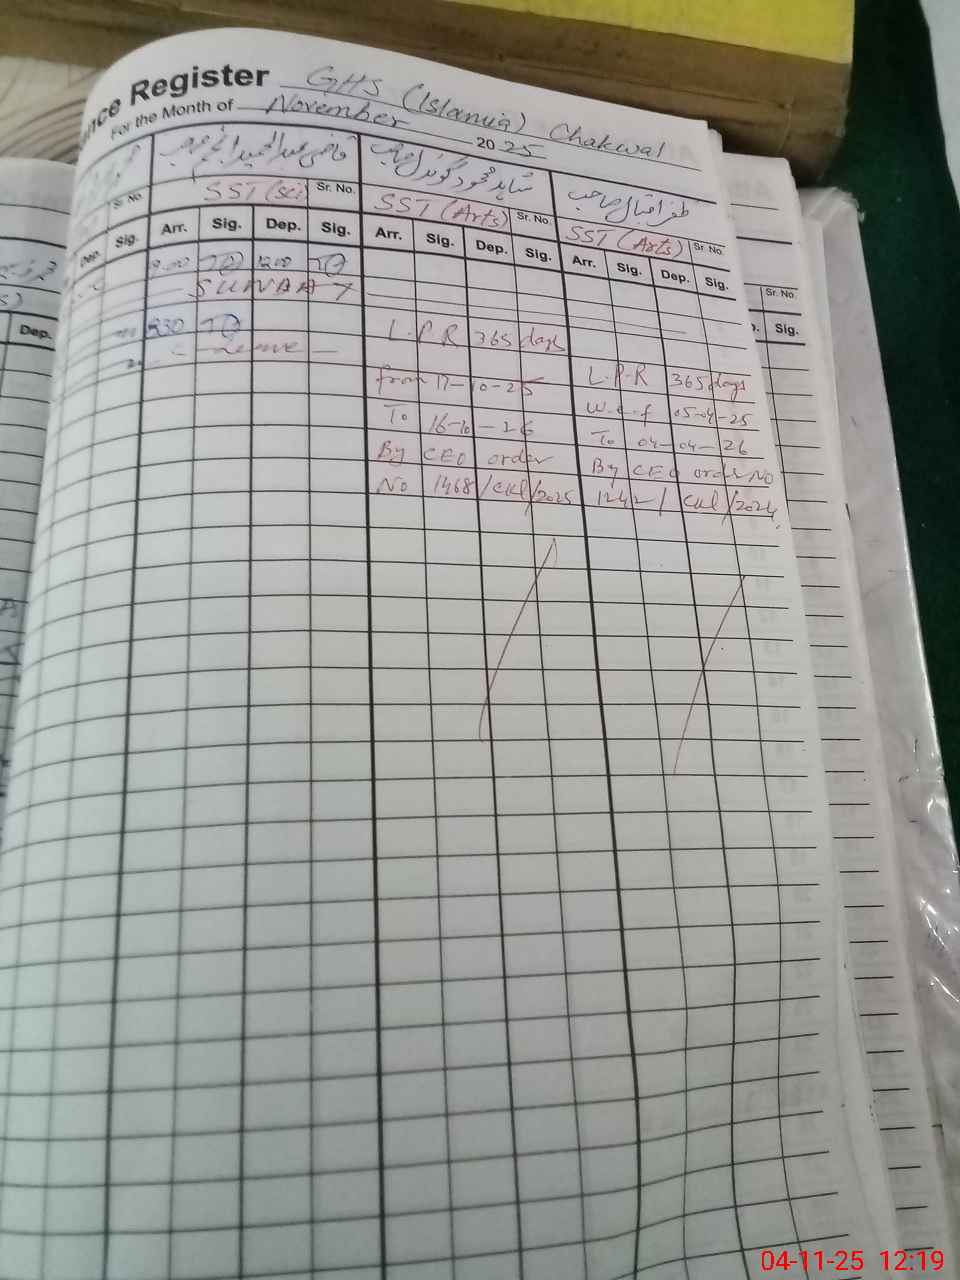 nce Register GHS (Islamia) Chakwal
For the Month of November 2025
شاہد محمود گوندل صاحب
ظفر اقبال صاحب
Sr. No. SST (Sci) Sr. No. SST (Arts) Sr. No. SST (Arts) Sr. No.
Dep. Sig. Arr. Sig. Dep. Sig. Arr. Sig. Dep. Sig. Arr. Sig. Dep. Sig.
Sr. No.
Dep.
Sig.
900 1200
SUNDAY
L.P.R 365 days
Leave
from 17-10-25
To 16-10-26
By CEO order
No 1468/CKL/2025
L.P.R 365 days
W.e.f 05-04-25
To 04-04-26
By CEO order NO
1242/CKL/2024
04-11-25 12:19